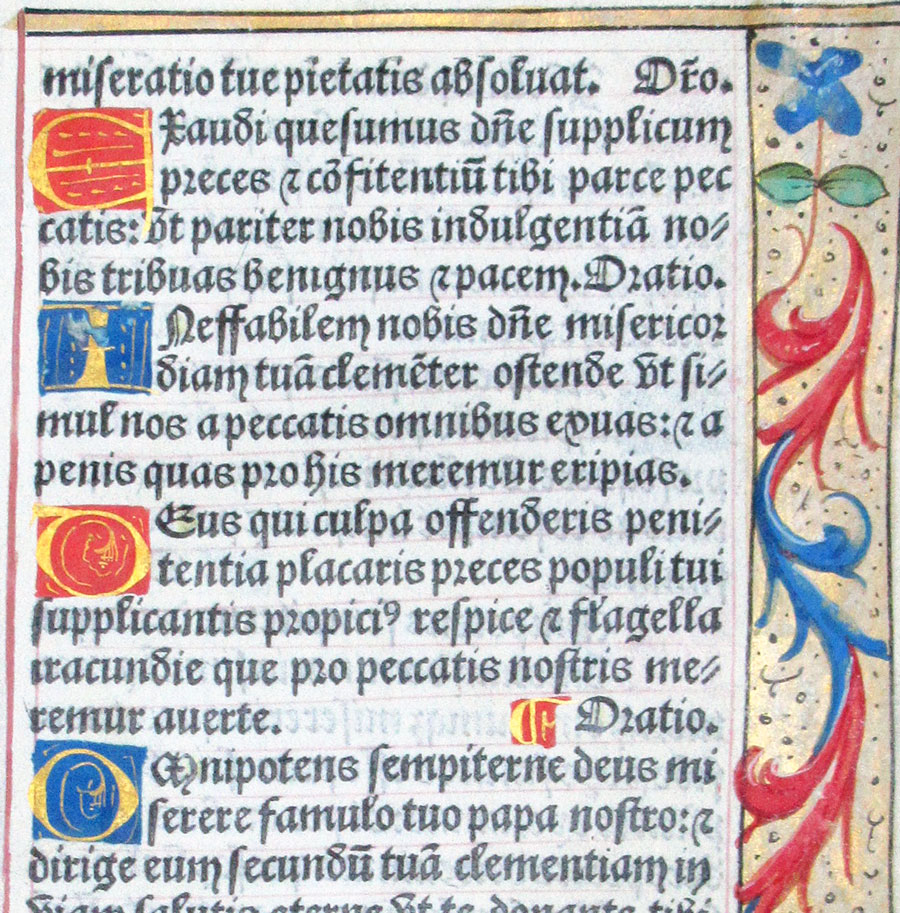 miseratio tue pietatis absoluat. Or̃o.
EXaudi quesumus dñe supplicum
preces ⁊ cõfitentiũ tibi parce pec
catis: vt pariter nobis indulgentiã no⸗
bis tribuas benignus ⁊ pacem. Oratio.
INeffabilem nobis dñe misericor
diam tuã clemẽter ostende vt si⸗
mul nos a peccatis omnibus exuas: ⁊ a
penis quas pro his meremur eripias.
DEus qui culpa offenderis peni⸗
tentia placaris preces populi tui
supplicantis propiciꝰ respice ⁊ flagella
iracundie que pro peccatis nostris me⸗
remur auerte. Oratio.
OMnipotens sempiterne deus mi
serere famulo tuo papa nostro: ⁊
dirige eum secundũ tuã clementiam in
viam salutis eterne vt te donante tibi